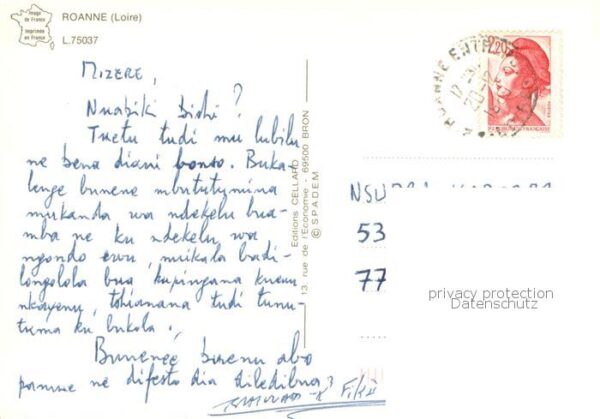 Image
de France
Imprimée
en France
ROANNE (Loire)
L.75037
MIZERE,
Nuabiki bishi ?
Tuetu tudi mu lubilu
ne bena diani bonso. Buka-
lenge bunene mbututumina
mukanda wa ndekelu bua-
mba ne ku ndekelu wa
ngondo ewu, muikala badi-
longolola bua kupingana kuenu
nkayenu, tshianana tudi tunu-
tuma ku bukola.
Bunenee buenu abo
pamue ne difesto dia diledibua
Editions CELLARD
13, rue de l'Economie - 69500 BRON
© S.P.A.D.E.M.
ROANNE
2,20
REPUBLIQUE FRANÇAISE
53
77
privacy protection
Datenschutz